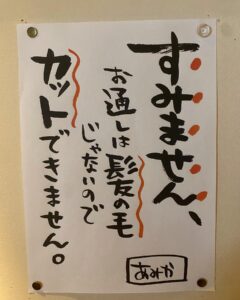 すみません、
お通しは髪の毛
じゃないので
カットできません。
あみやか